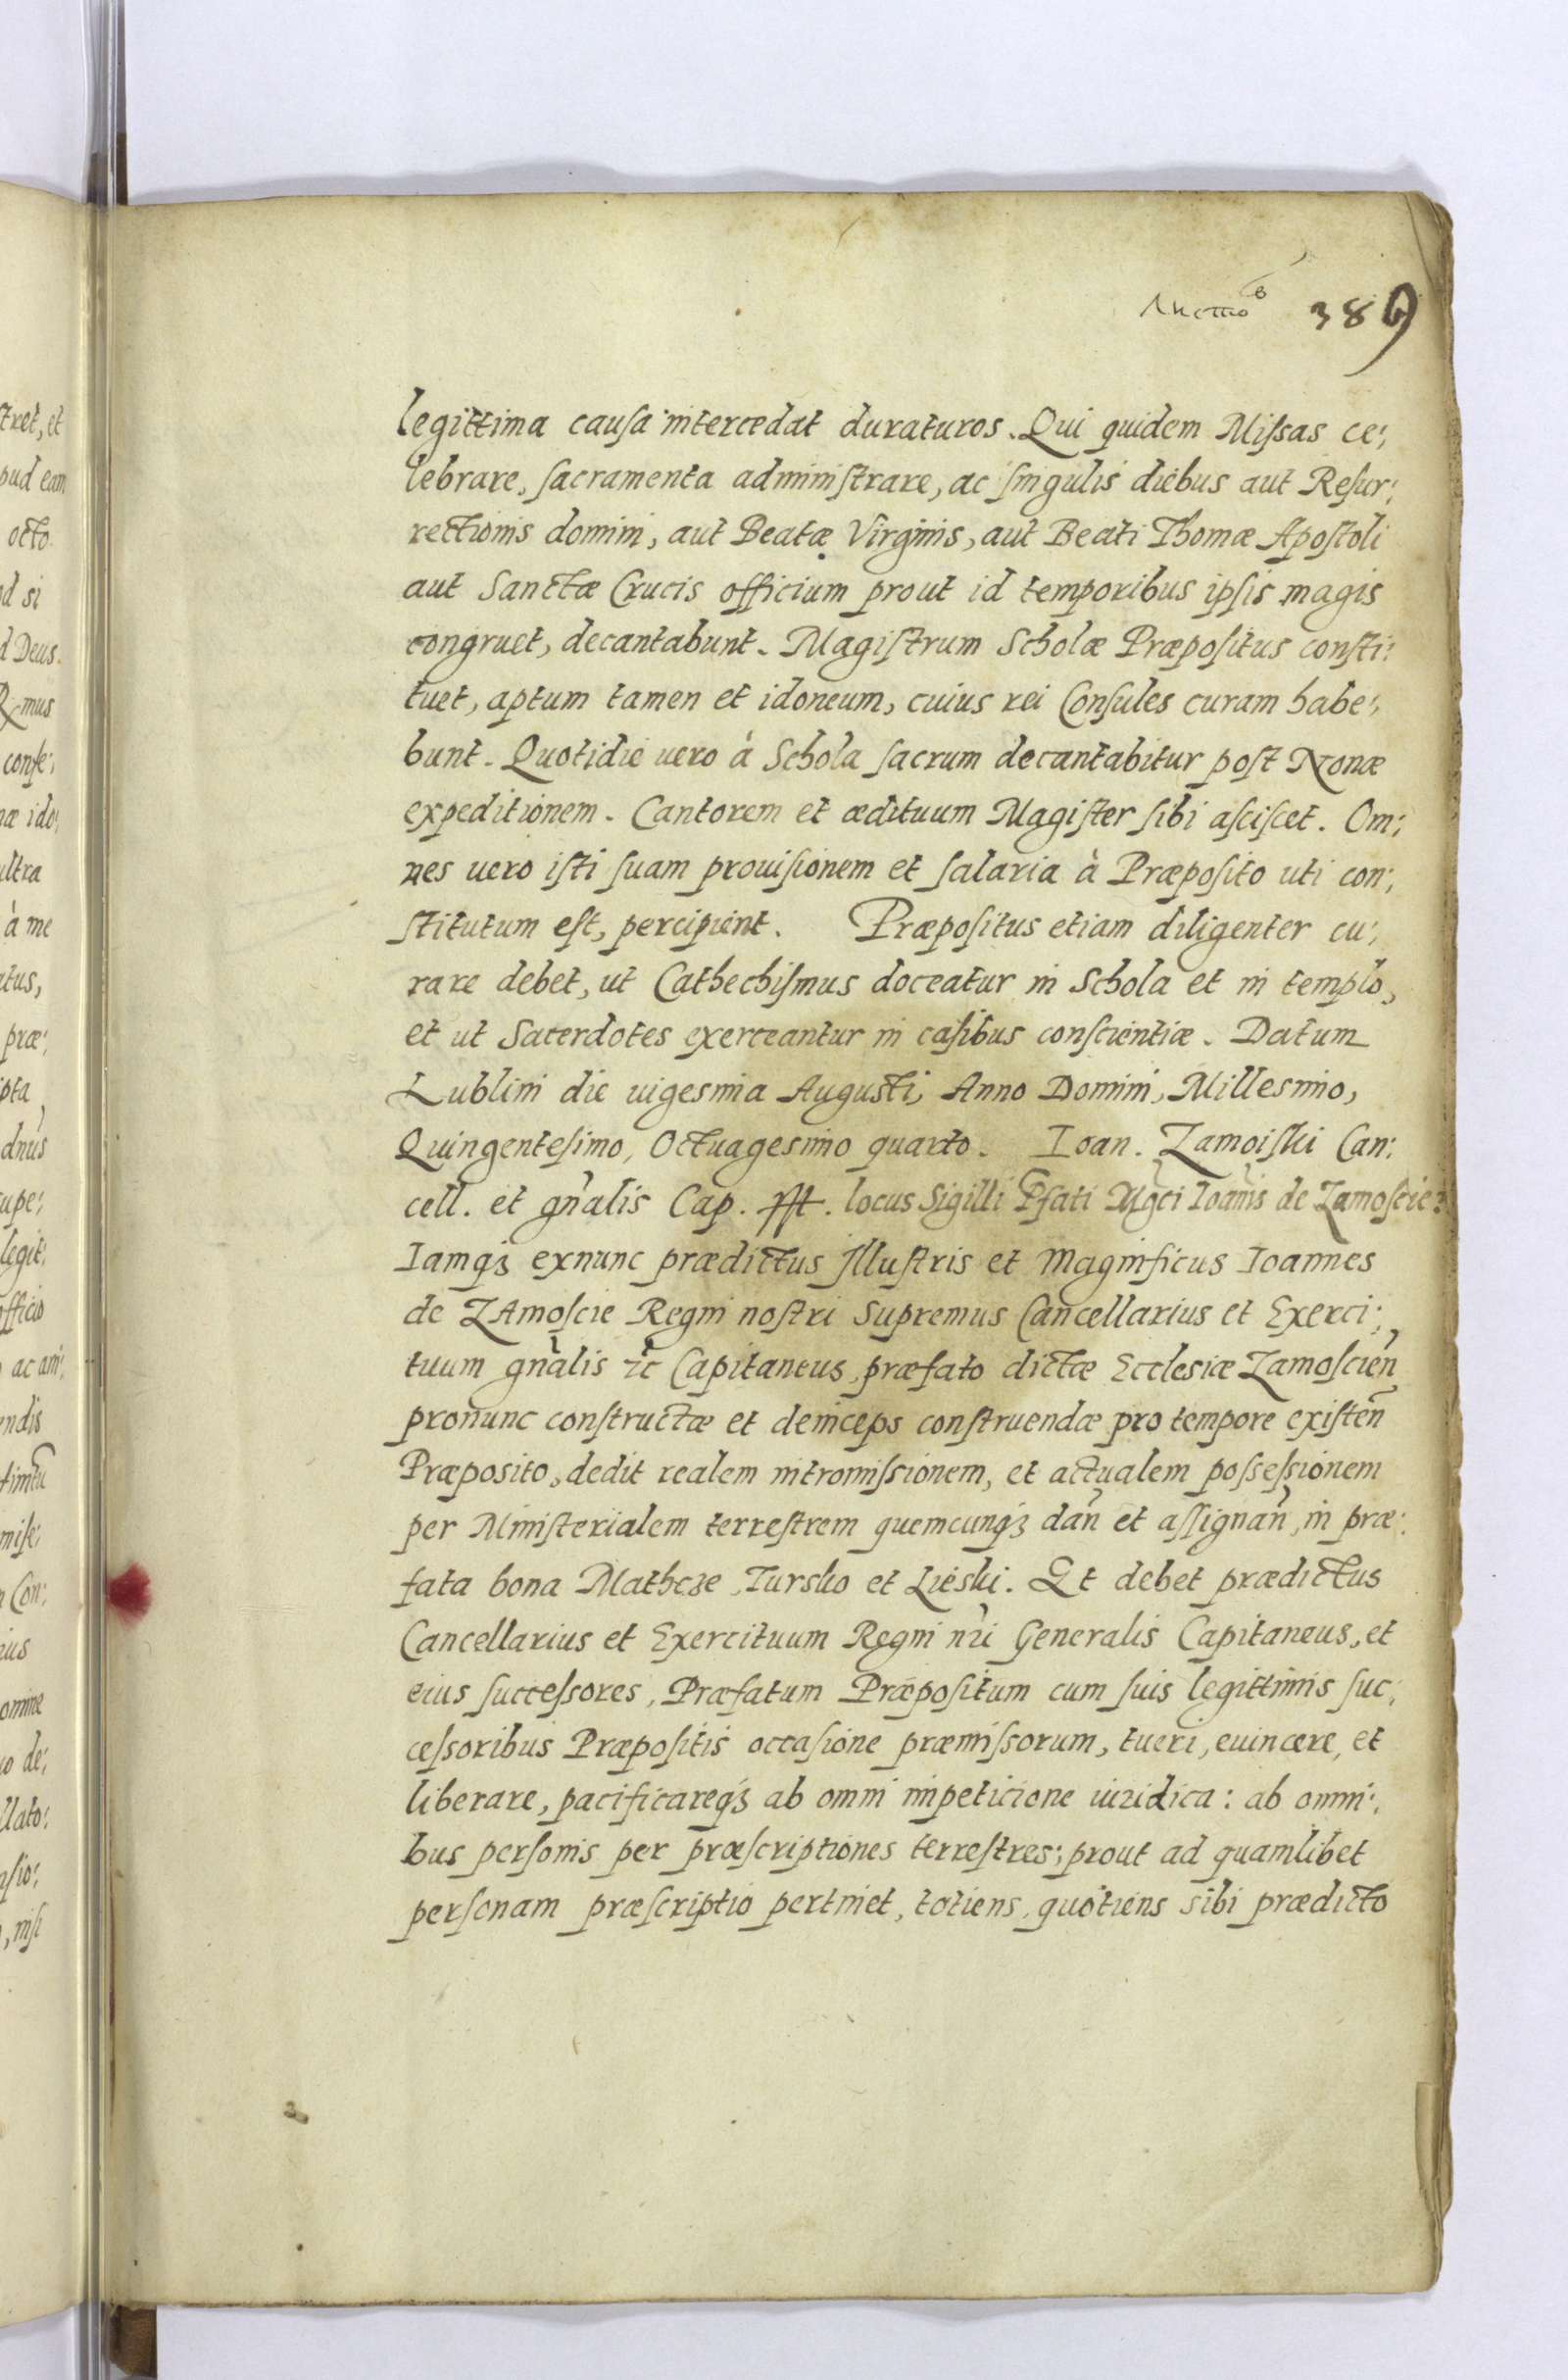 Листов 389
legittima causa intercedat duraturos. Qui quidem Missas ce:
lebrare, sacramenta administrare, ac singulis diebus aut Resur:
rectionis domini, aut Beatæ Virginis, aut Beati Thomæ Apostoli
aut Sanctæ Crucis officium prout id temporibus ipsis magis
congruet, decantabunt. Magistrum Scholæ Præpositus consti:
tuet, aptum tamen et idoneum, cuius rei Consules curam habe:
bunt. Quotidie uero à Schola sacrum decantabitur post Nonæ
expeditionem. Cantorem et ædituum Magister sibi asciscet. Om:
nes uero isti suam prouisionem et salaria à Præposito uti con:
stitutum est, percipient. Præpositus etiam diligenter cu:
rare debet, ut Cathechismus doceatur in Schola et in templo,
et ut Sacerdotes exerceantur in casibus conscientiæ. Datum
Lublini die uigesima Augusti, Anno Domini, Millesimo,
Quingentesimo, Octuagesimo quarto. Ioan. Zamoiski Can:
cell. et gn̄alis Cap. locus Sigilli P̄fati Mgc̄i Ioan̄is de Zamoscie:
Iamqꝫ exnunc prædictus Illustris et Magnificus Ioannes
de ZAmoscie Regni nostri Supremus Cancellarius et Exerci:
tuum gn̄alis ꝛc̄ Capitaneus, præfato dictæ Ecclesiæ Zamoscien̄
pronunc constructæ et deinceps construendæ pro tempore existen̄
Præposito, dedit realem intromissionem, et actualem possessionem
per Ministerialem terrestrem quemcunqꝫ dan̄ et assignan̄, in præ:
fata bona Mathcze, Tursko et Lieski. Et debet prædictus
Cancellarius et Exercituum Regni nr̄i Generalis Capitaneus, et
eius successores, Præfatum Præpositum cum suis legittimis suc:
cessoribus Præpositis occasione præmissorum, tueri, euincere, et
liberare, pacificareqꝫ ab omni impeticione iuridica: ab omni:
bus personis per præscriptiones terrestres; prout ad quamlibet
personam præscriptio pertinet, totiens, quotiens sibi prædicto